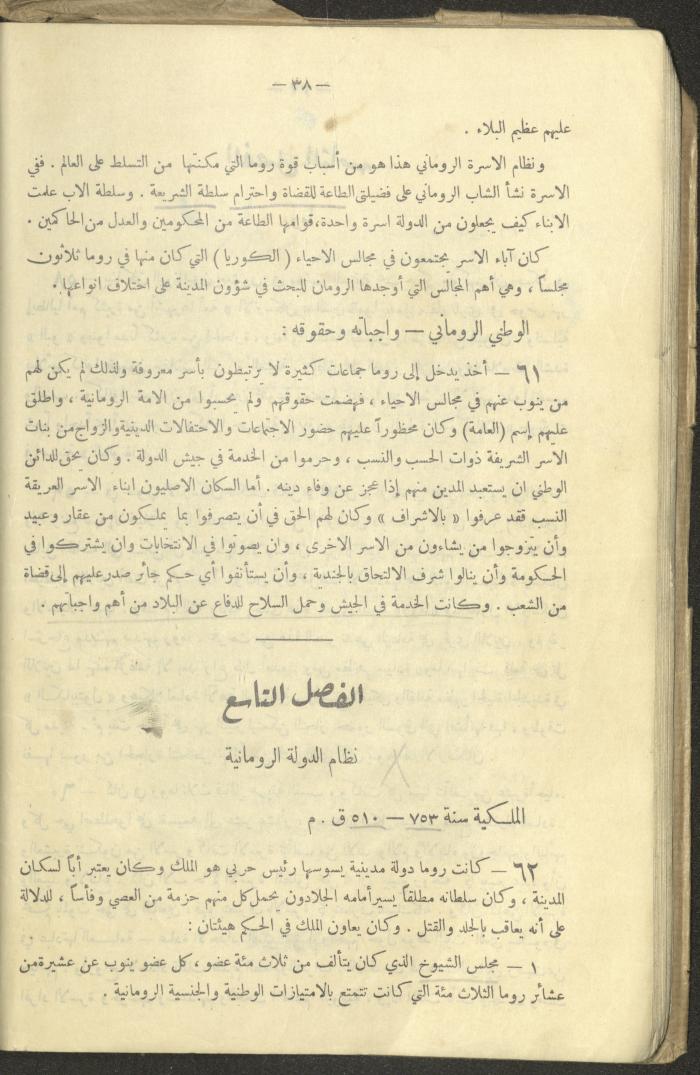 — ٣٨ —
عليهم عظيم البلاء .
ونظام الاسرة الروماني هذا هو من أسباب قوة روما التي مكنتها من التسلط على العالم . ففي
الاسرة نشأ الشاب الروماني على فضيلتي الطاعة للقضاة واحترام سلطة الشريعة . وسلطة الاب علمت
الابناء كيف يجعلون من الدولة اسرة واحدة، قوامها الطاعة من المحكومين والعدل من الحاكمين .
كان آباء الاسر يجتمعون في مجالس الاحياء ( الكوريا ) التي كان منها في روما ثلاثون
مجلساً ، وهي أهم المجالس التي أوجدها الرومان للبحث في شؤون المدينة على اختلاف انواعها .
الوطني الروماني — واجباته وحقوقه :
٦١ — أخذ يدخل إلى روما جماعات كثيرة لا يرتبطون بأسر معروفة ولذلك لم يكن لهم
من ينوب عنهم في مجالس الاحياء ، فهضمت حقوقهم ولم يحسبوا من الامة الرومانية ، واطلق
عليهم إسم (العامة) وكان محظوراً عليهم حضور الاجتماعات والاحتفالات الدينية والزواج من بنات
الاسر الشريفة ذوات الحسب والنسب ، وحرموا من الخدمة في جيش الدولة . وكان يحق للدائن
الوطني ان يستعبد المدين منهم إذا عجز عن وفاء دينه . أما السكان الاصليون ابناء الاسر العريقة
النسب فقد عرفوا « بالاشراف » وكان لهم الحق في أن يتصرفوا بما يملكون من عقار وعبيد
وأن يتزوجوا من يشاءون من الاسر الاخرى ، وان يصوتوا في الانتخابات وان يشتركوا في
الحكومة وأن ينالوا شرف الالتحاق بالجندية ، وأن يستأنفوا أي حكم جائر صدر عليهم إلى قضاة
من الشعب . وكانت الخدمة في الجيش وحمل السلاح للدفاع عن البلاد من أهم واجباتهم .
الفصل التاسع
نظام الدولة الرومانية
الملكية سنة ٧٥٣ — ٥١٠ ق . م
٦٢ — كانت روما دولة مدينية يسوسها رئيس حربي هو الملك وكان يعتبر أباً لسكان
المدينة ، وكان سلطانه مطلقاً يسير أمامه الجلادون يحمل كل منهم حزمة من العصي وفأساً ، للدلالة
على أنه يعاقب بالجلد والقتل . وكان يعاون الملك في الحكم هيئتان :
١ — مجلس الشيوخ الذي كان يتألف من ثلاث مئة عضو ، كل عضو ينوب عن عشيرة من
عشائر روما الثلاث مئة التي كانت تتمتع بالامتيازات الوطنية والجنسية الرومانية .